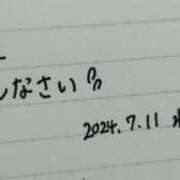 なさい
2024.7.11